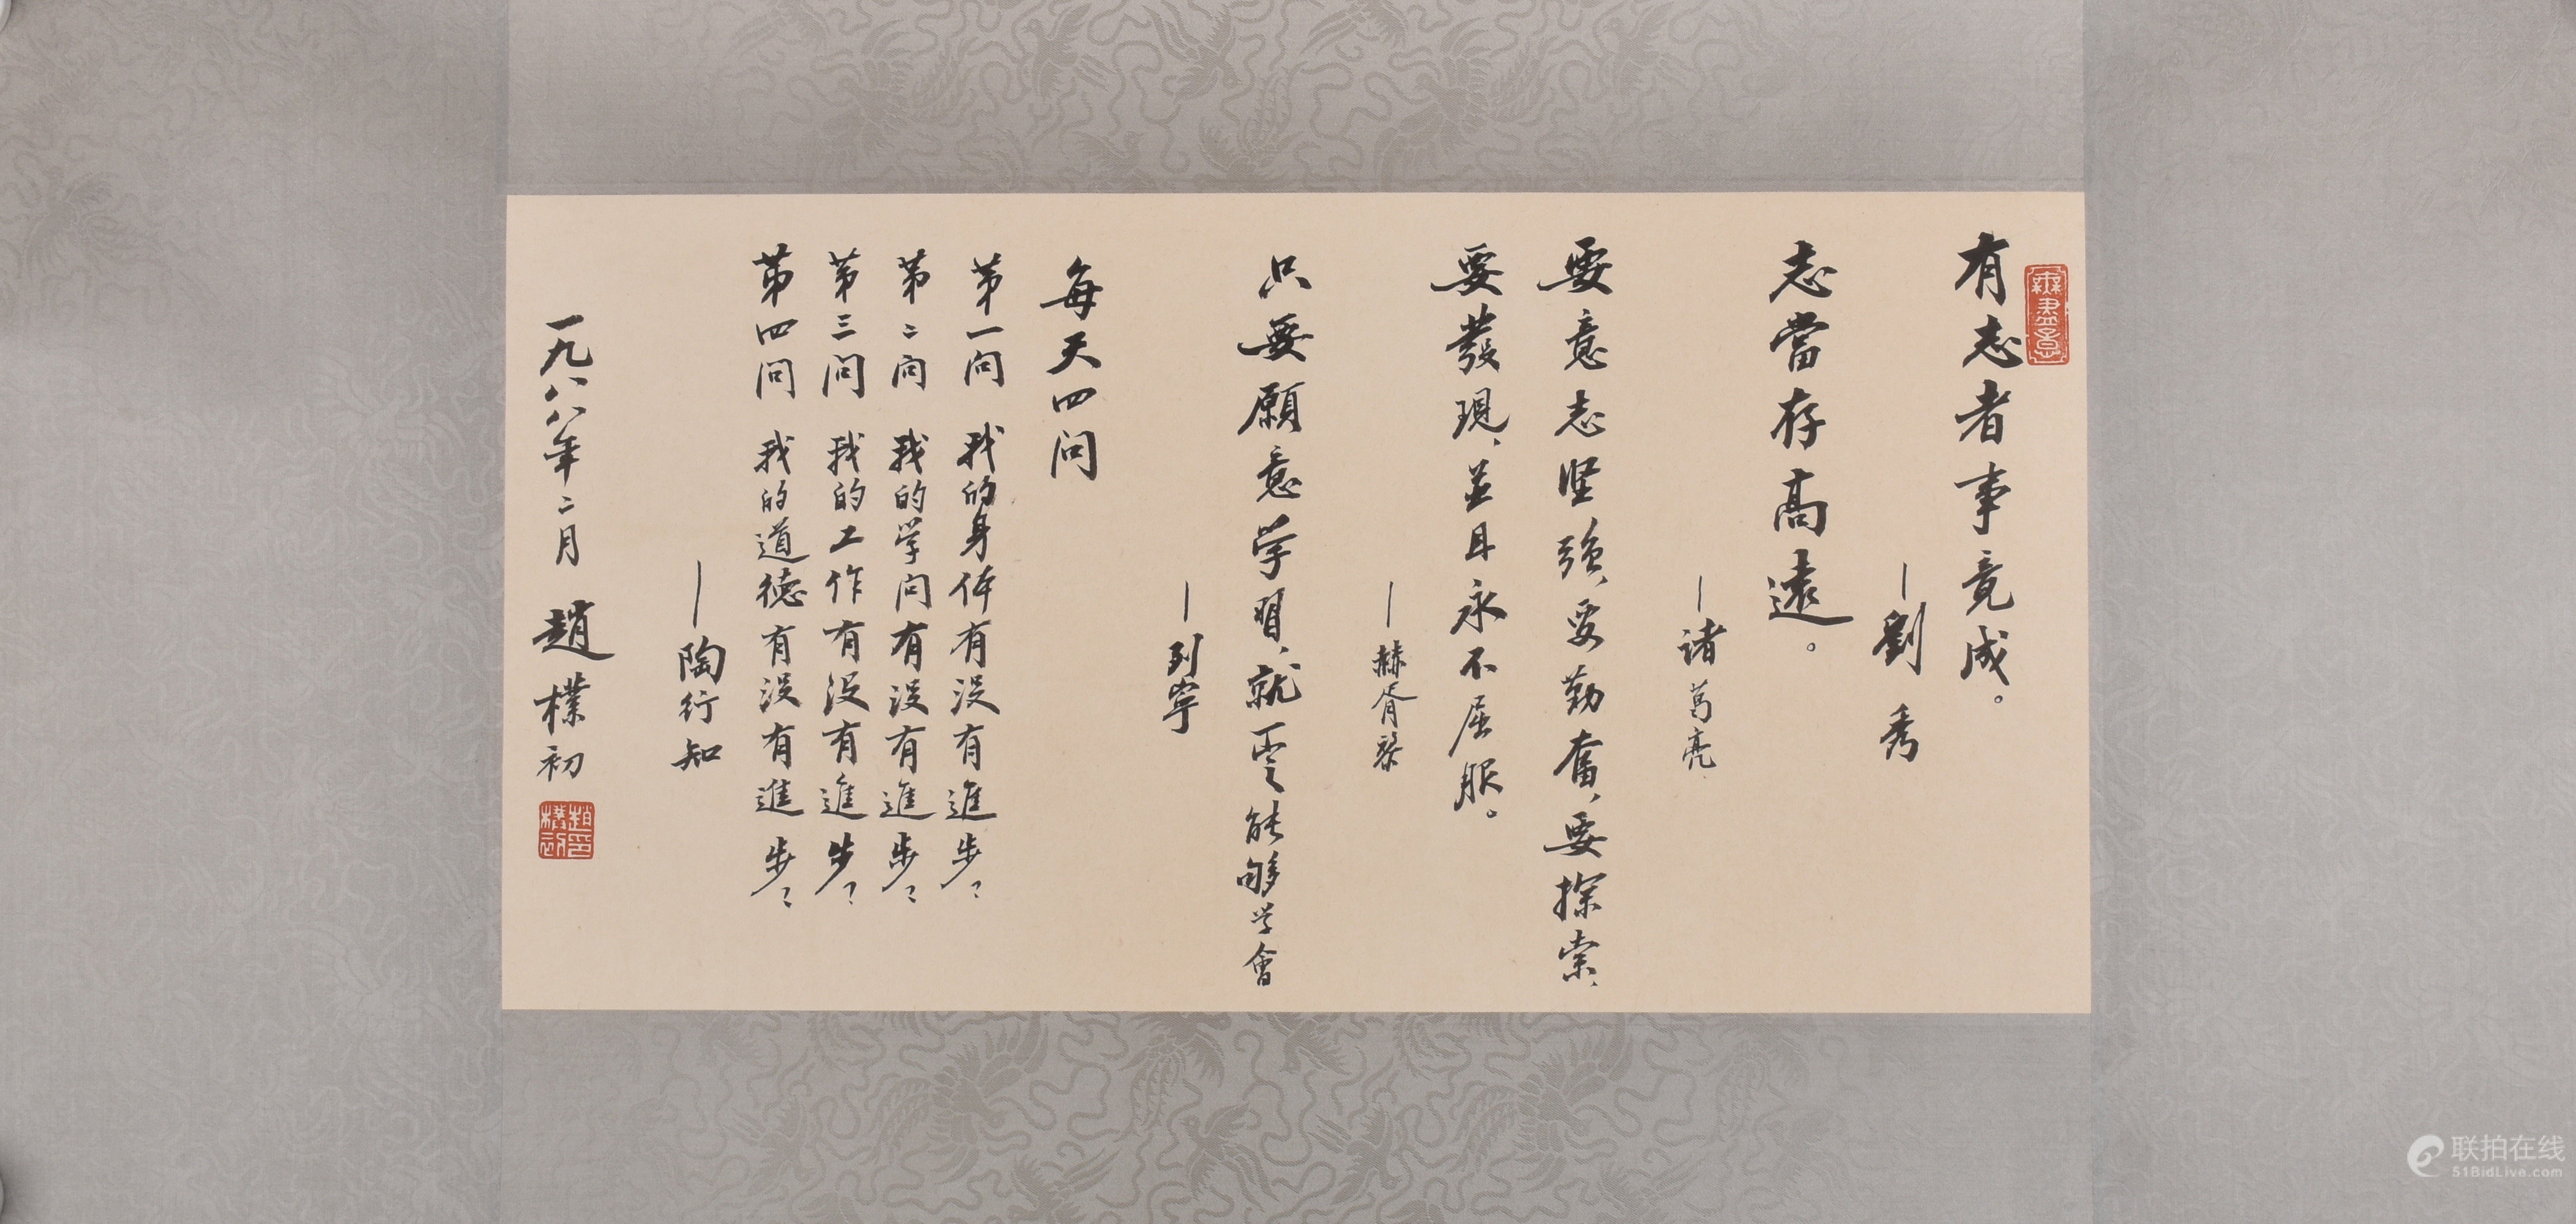 有志者事竟成。
—劉秀
志當存高遠。
—诸葛亮
要意志坚强、要勤奮、要探索、
要發現、並且永不屈服。
—赫胥黎
只要願意学習、就一定能够学會
—列寧
每天四问
第一问 我的身体有没有進步？
第二问 我的学问有没有進步？
第三问 我的工作有没有進步？
第四问 我的道德有没有進步？
—陶行知
一九八八年二月 趙樸初
無盡意
趙樸初印
联拍在线
51BidLive.com